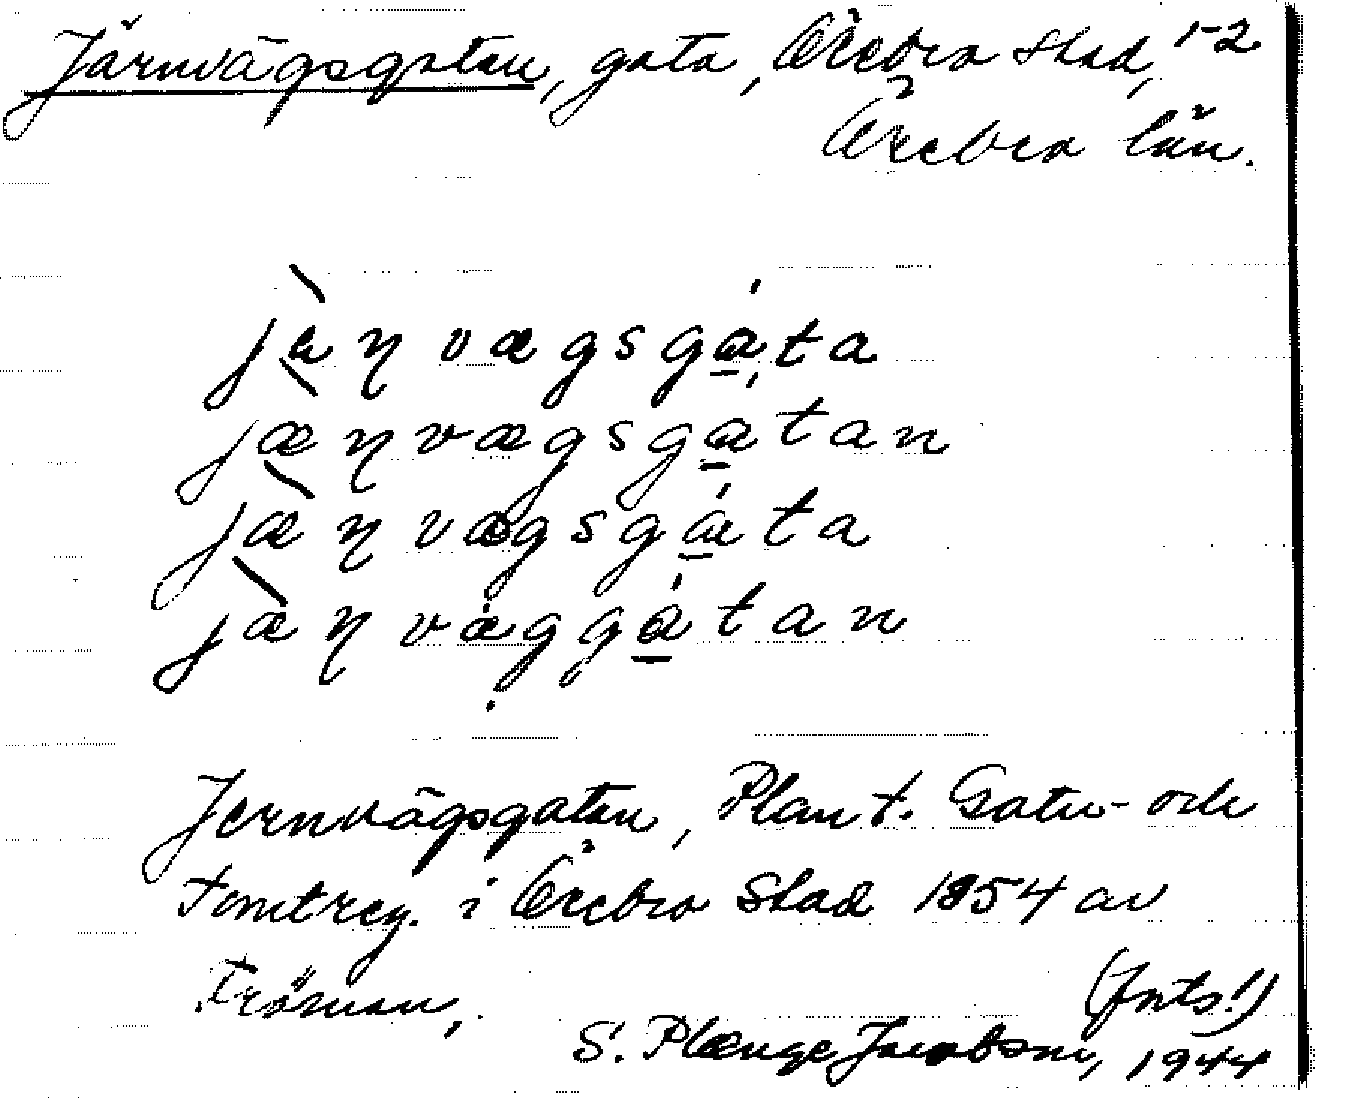 Järnvägsgatan, gata, Örebro stad, 1-2
Örebro län.
jæ̀ɳvægsga̱ta
jæ̀ɳvægsga̱tan
jæ̀ɳvægsga̱ta
jæ̀ɳvæggа̱tan
Jernvägsgatan, Plan t. Gatu- och
Tomtreg. i Örebro Stad 1854 av
Fröman,
(forts!)
S. Plænge Jacobson, 1944